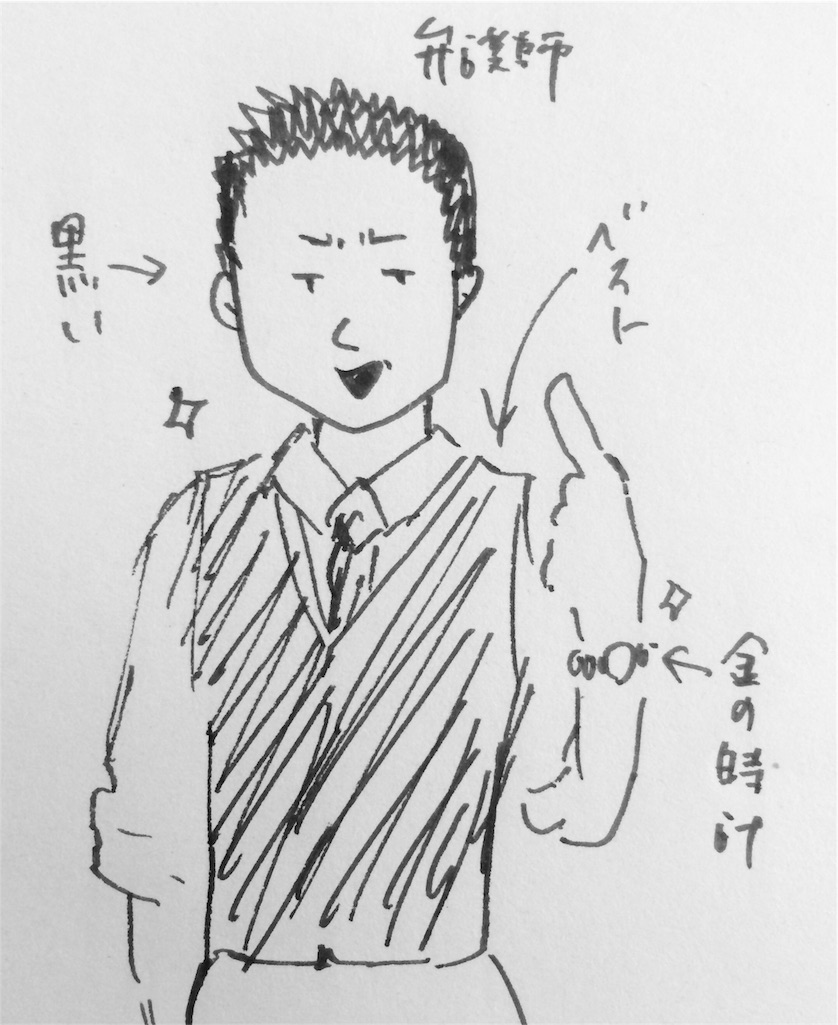 弁護師
ベスト
黒い
金の時計